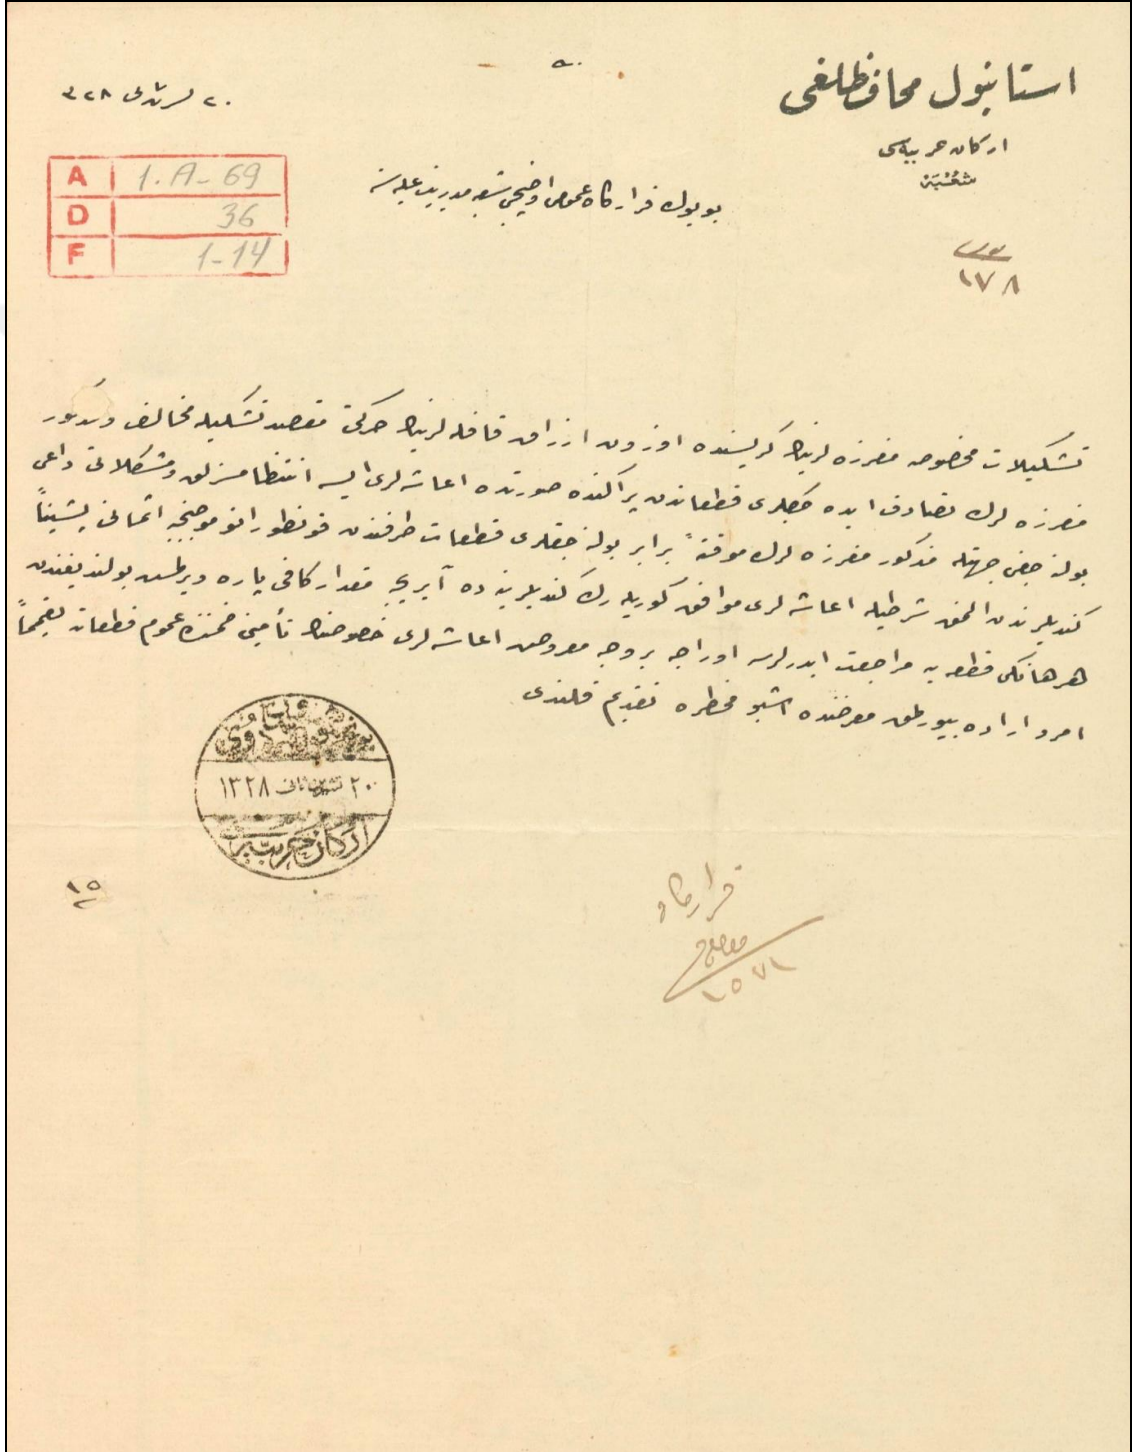 استانبول محافظلغی
اركان حربیه‌سی
شعبه
١٧٨
٢٠ تشرین ٣٢٨
A 1.A-69
D 36
F 1-14
بویوك قرارگاه عمومی شعبه مدیریت علیه‌سنه
تشكیلات مخصوصه مفرزه لرینك گریسنده اوزون ارزاق قافله لرینك حركتی مقصد تشكیله مخالف ومذكور
مفرزه لرك تصادف ایده جكلری قطعاتدن پراكنده صورتده اعاشه لری ایسه انتظامسزلق ومشكلاتی داعی
بولنه جغی جهتله مذكور مفرزه لرك موقتةً برابر بولنه جقلری قطعات طرفندن قونطوراتو موجبنجه اثمانی پیشیناً
كندیلرندن آلنمق شرطیله اعاشه لری موافق كوریله رك كندیلرینه ده آیریجه مقدار كافی پاره ویرلمش بولندیغندن
هر هانكی قطعه یه مراجعت ایدرلرسه اوراجه بر وجه معروض اعاشه لری خصوصنك تأمینی ضمننده عموم قطعاته تعمیماً
امر و اراده بیورلمق معرضنده اشبو مخطره تقدیم قلندی
٢٠ تشرین ثانی ١٣٢٨
اركان حربیه
١٥
قرارگاه
١٥٧١